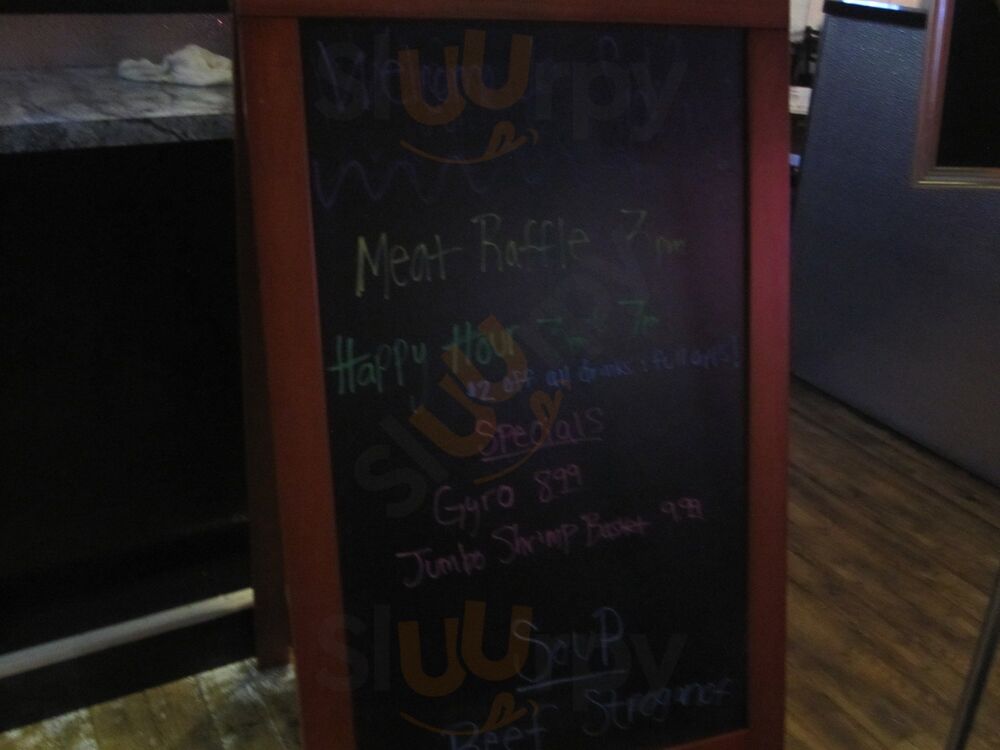 Welcome
Meat Raffle 7pm
Happy Hour 7pm
$2 off all drinks & full apps!
Specials
Gyro 8.99
Jumbo Shrimp Basket 9.99
Soup
Beef Stroganof
sluurpy
sluurpy
sluurpy